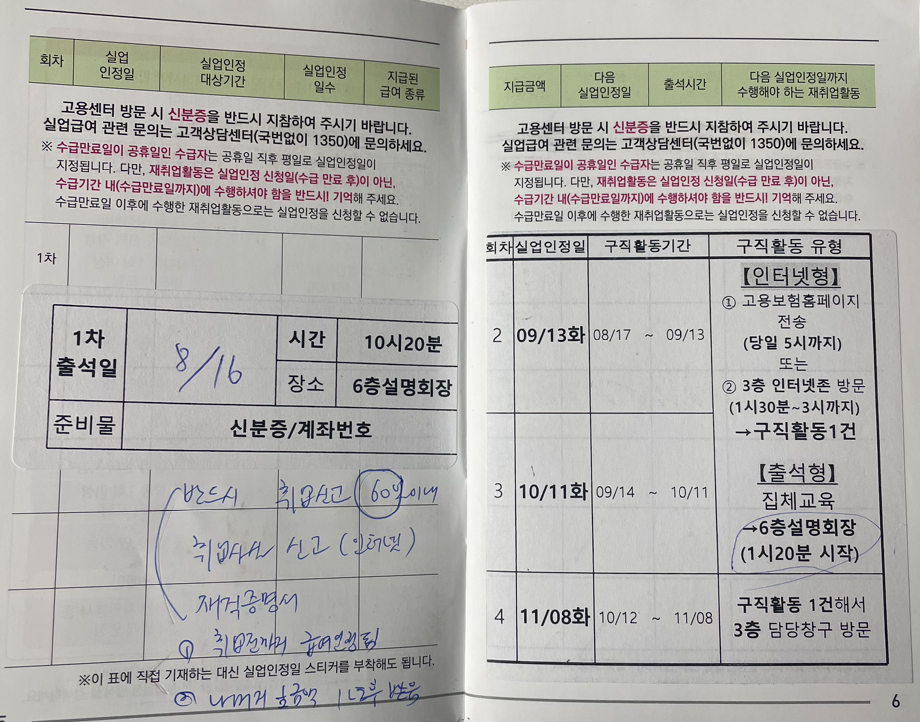 회차
실업
인정일
실업인정
대상기간
실업인정
일수
지급된
급여 종류
고용센터 방문 시 신분증을 반드시 지참하여 주시기 바랍니다.
실업급여 관련 문의는 고객상담센터(국번없이 1350)에 문의하세요.
※ 수급만료일이 공휴일인 수급자는 공휴일 직후 평일로 실업인정일이
지정됩니다. 다만, 재취업활동은 실업인정 신청일(수급 만료 후)이 아닌,
수급기간 내(수급만료일까지)에 수행하셔야 함을 반드시! 기억해 주세요.
수급만료일 이후에 수행한 재취업활동으로는 실업인정을 신청할 수 없습니다.
1차
1차
출석일
8/16
시간
10시20분
장소
6층설명회장
준비물
신분증/계좌번호
반드시 취업신고 60일이내
취업사실 신고 (인터넷)
재직증명서
① 취업전까지
※이 표에 직접 기재하는 대신 실업인정일 스티커를 부착해도 됩니다.
② 나머지
지급금액
다음
실업인정일
출석시간
다음 실업인정일까지
수행해야 하는 재취업활동
고용센터 방문 시 신분증을 반드시 지참하여 주시기 바랍니다.
실업급여 관련 문의는 고객상담센터(국번없이 1350)에 문의하세요.
※ 수급만료일이 공휴일인 수급자는 공휴일 직후 평일로 실업인정일이
지정됩니다. 다만, 재취업활동은 실업인정 신청일(수급 만료 후)이 아닌,
수급기간 내(수급만료일까지)에 수행하셔야 함을 반드시! 기억해 주세요.
수급만료일 이후에 수행한 재취업활동으로는 실업인정을 신청할 수 없습니다.
회차 실업인정일 구직활동기간 구직활동 유형
2 09/13화 08/17 ~ 09/13
【인터넷형】
① 고용보험홈페이지
전송
(당일 5시까지)
또는
② 3층 인터넷존 방문
(1시30분~3시까지)
→구직활동1건
3 10/11화 09/14 ~ 10/11
【출석형】
집체교육
→6층설명회장
(1시20분 시작)
4 11/08화 10/12 ~ 11/08
구직활동 1건해서
3층 담당창구 방문
6